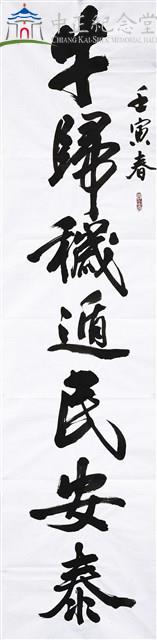 中正紀念堂
CHIANG KAI-SHEK MEMORIAL HALL
壬寅春
牛歸穢遁民安泰